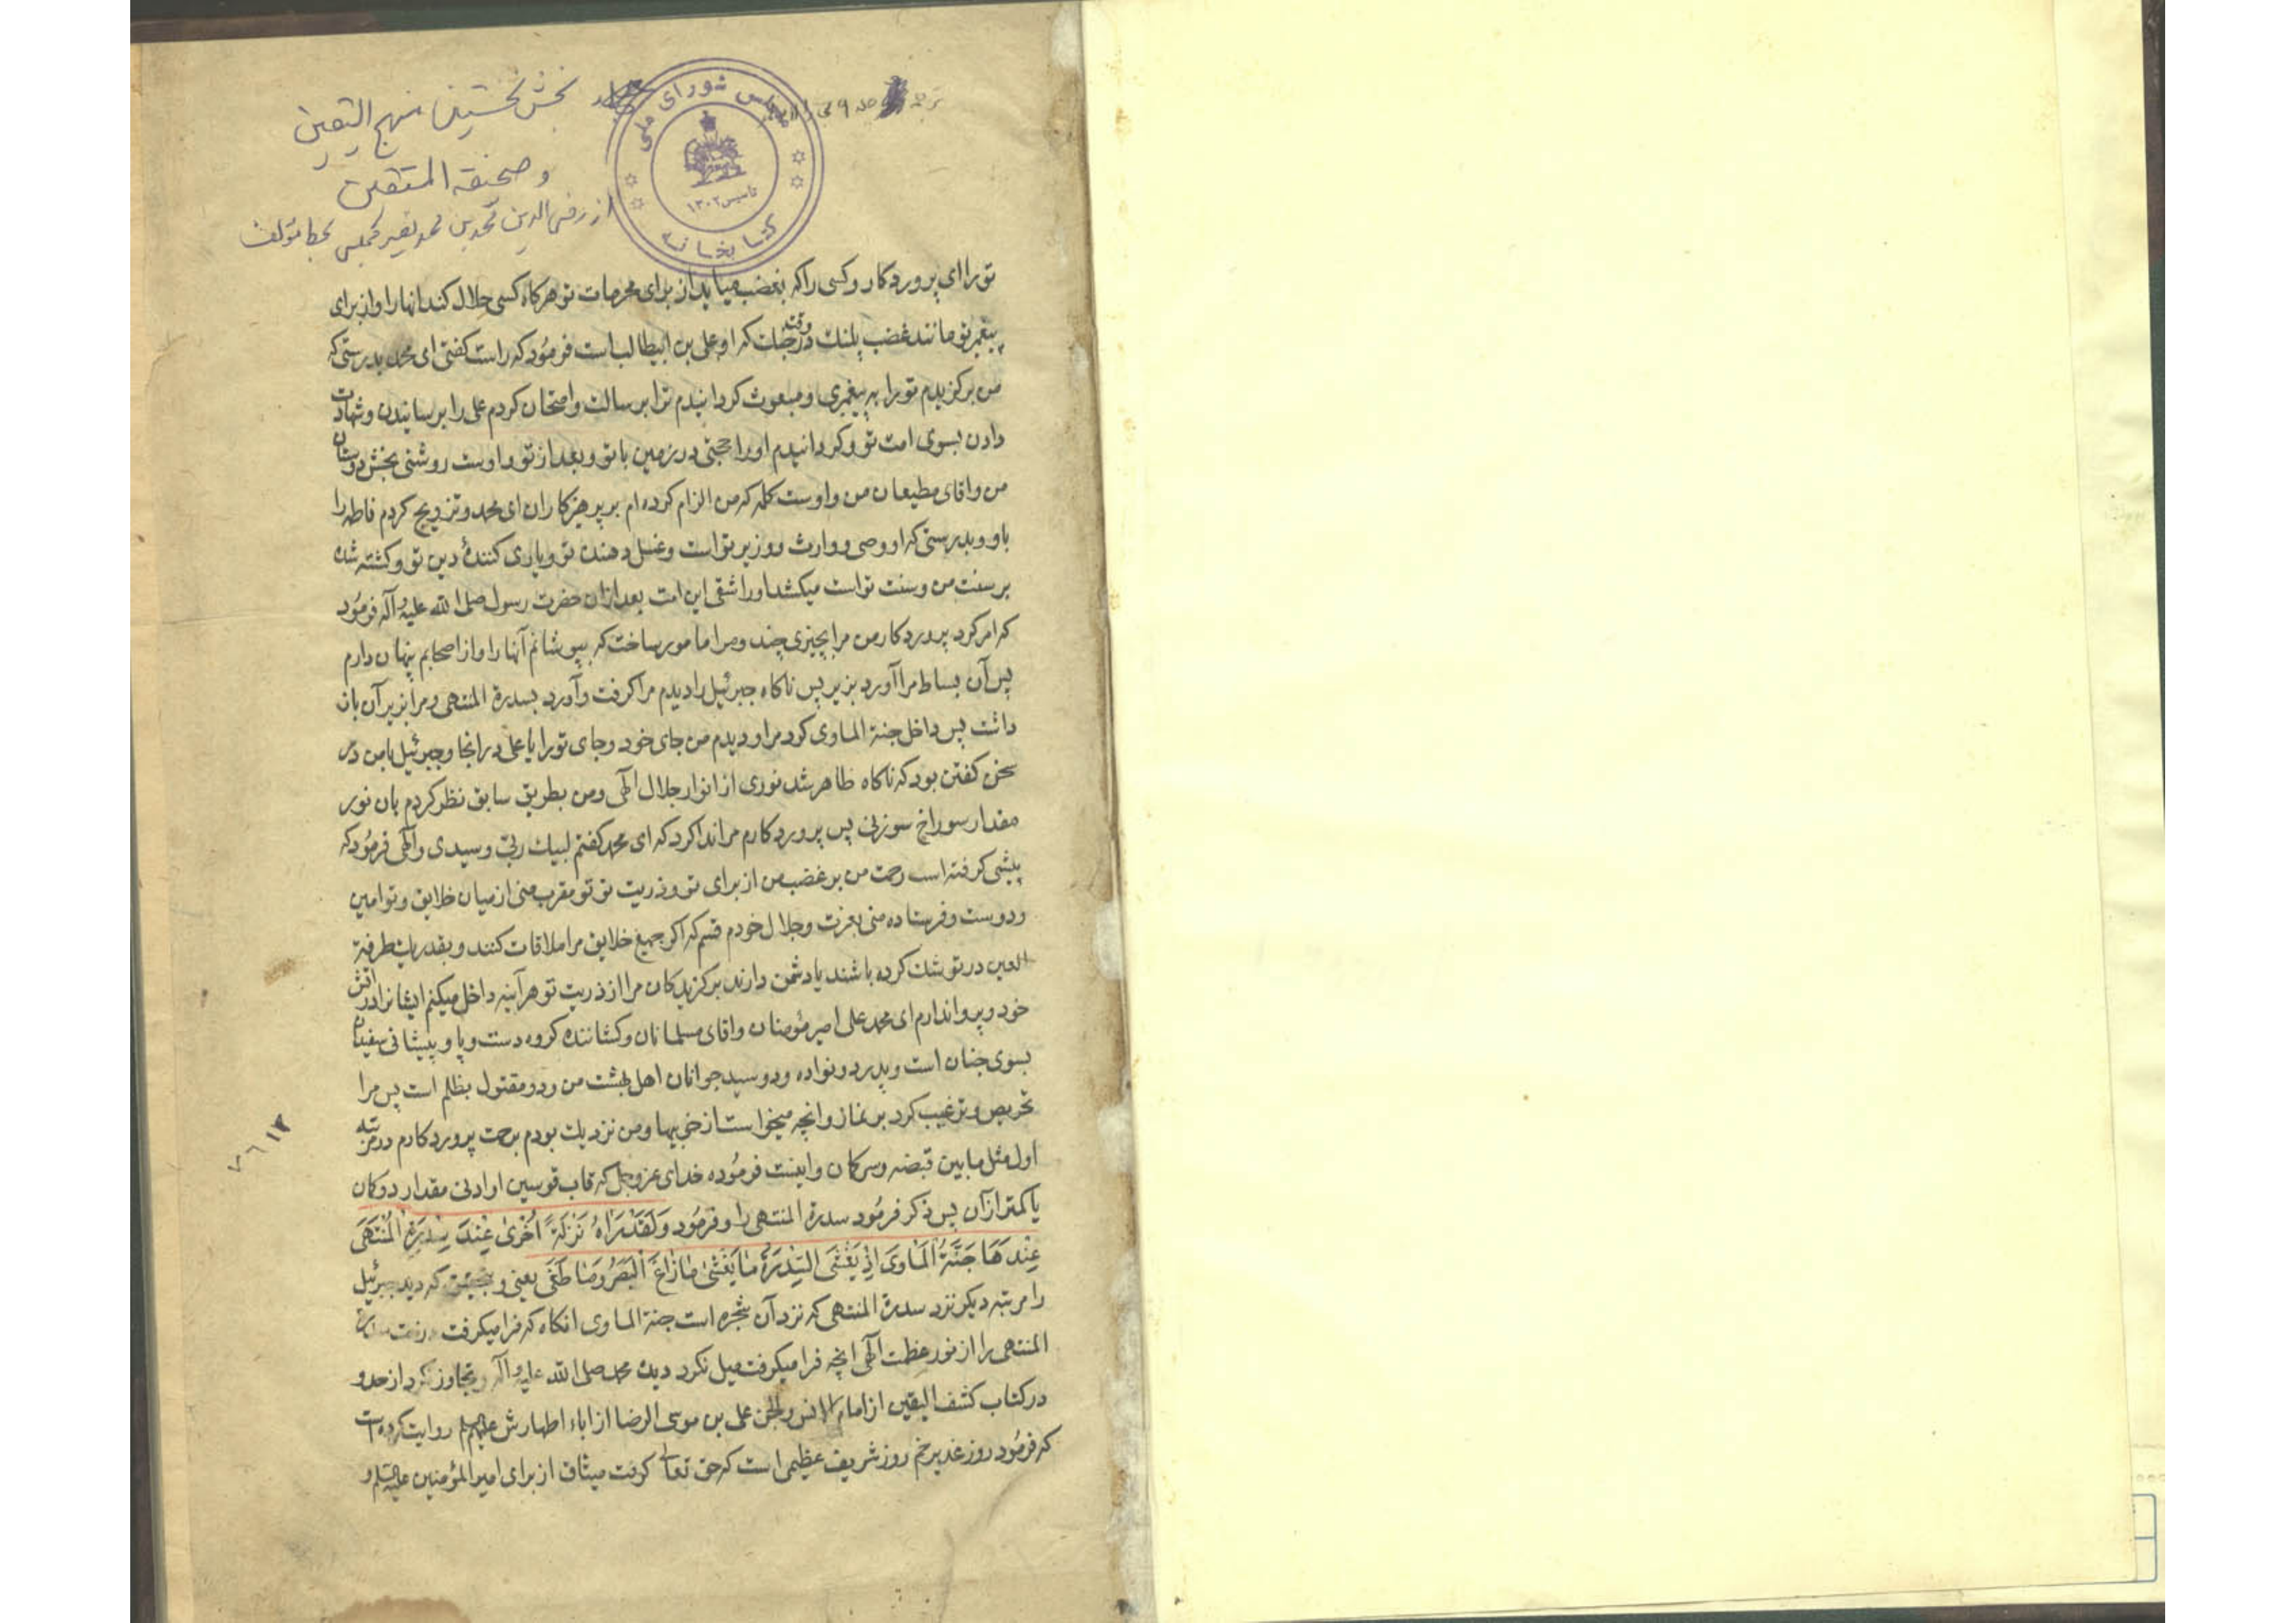 ترجمه جلد ۹ بحار الانوار
بخش نخستین منهج الیقین
و صحیفة المتقین
از رضی الدین محمد بن محمد نصیر مجلسی بخط مؤلف
مجلس شورای ملی
تاسیس ۱۳۰۲
کتابخانه
تو را ای پروردکار وکسی را که بغضب میاید از برای محرمات تو هرکاه کسی حلال کند انها را واز برای
پیغمبر تو مانند غضب پلنک که او علی بن ابیطالب است فرمُود که راست کفتی ای محمد بدرستی که
من برکزیدم تو را به پیغمبری ومبعوث کردانیدم ترا برسالت وامتحان کردم علی را برسانیدن وشهادت
دادن بسوی امت تو وکردانیدم او را حجتی در زمین با تو وبعد از تو واوست روشنی بخش دوستان
من واقای مطیعان من واوست کلمه که من الزام کرده ام بر پرهیزکاران ای محمد وتزویج کردم فاطمه را
باو وبدرستی که او وصی ووارث ووزیر تو است وغسل دهنده تو ویاری کنندۀ دین تو وکشته شده
بر سنت من وسنت تو است میکشد او را شقی این امت بعد ازان حضرت رسول صلی الله علیه وآله فرمُود
که امر کرد پروردکار من مرا بچیزی چند ومرا مامور ساخت که بپوشانم آنها را واز اصحابم پنهان دارم
پس آن بساط مرا آورد بزیر پس ناکاه جبرئیل را دیدم مرا کرفت وآورد بسدرة المنتهی ومرا بزیر آن باز
داشت پس داخل جنة الماوی کرد مرا ودیدم من جای خود وجای تو را یا علی درانجا وجبرئیل با من در
سخن کفتن بود که ناکاه ظاهر شد نوری از انوار جلال الهی ومن بطریق سابق نظر کردم بان نور
مقدار سوراخ سوزنی پس پروردکارم مرا ندا کرد که ای محمد کفتم لبیک ربی وسیدی والهی فرمُود که
پیشی کرفته است رحمت من بر غضب من از برای تو وذریت تو تو مقرب منی از میان خلایق وتو امین
ودوست وفرستاده منی بعزت وجلال خودم قسم که اکر جمیع خلایق مرا ملاقات کنند وبقدر یک طرفة
العین در تو شک کرده باشند یا دشمن دارند برکزیدکان مرا از ذریت تو هرآینه داخل میکنم ایشانرا در اتش
خود وپروا ندارم ای محمد علی امیر مؤمنان واقای مسلمانان وکشاننده کروه دست وپا وپیشانی سفیدان
بسوی جنان است وپدر دو نواده ودو سید جوانان اهل بهشت من ودو مقتول بظلم است پس مرا
تحریص وترغیب کرد بر نماز وانچه میخواست از خوبیها ومن نزدیک بودم برحمت پروردکارم در مرتبه
اول مثل مابین قبضه وسر کمان واینست فرمُوده خدای عز وجل که قاب قوسین او ادنی مقدار دو کمان
یا کمتر ازآن پس ذکر فرمُود سدرة المنتهی را وفرمُود وَلَقَدْ رَاهُ نَزْلَةً اُخْرىٰ عِنْدَ سِدْرَةِ الْمُنْتَهىٰ
عِنْدَهَا جَنَّةُ الْمَاوىٰ اِذْ یَغْشَى السِّدْرَةَ مٰا یَغْشىٰ مٰا زٰاغَ الْبَصَرُ وَمٰا طَغىٰ یعنی وبتحقیق که دید جبرئیل
را مرتبه دیکر نزد سدرة المنتهی که نزد آن شجره است جنة الماوی انکاه که فرا میکرفت درخت سدرة
المنتهی را از نور عظمت الهی انچه فرا میکرفت میل نکرد دیده محمد صلی الله علیه وآله وتجاوز نکرد از حد و
در کتاب کشف الیقین از امام الانس والجن علی بن موسی الرضا از اباء اطهارش علیهم السلم روایت کرده است
که فرمُود روز غدیر خم روز شریف عظیمی است که حق تعالی کرفت میثاق از برای امیر المؤمنین علیه السلم و